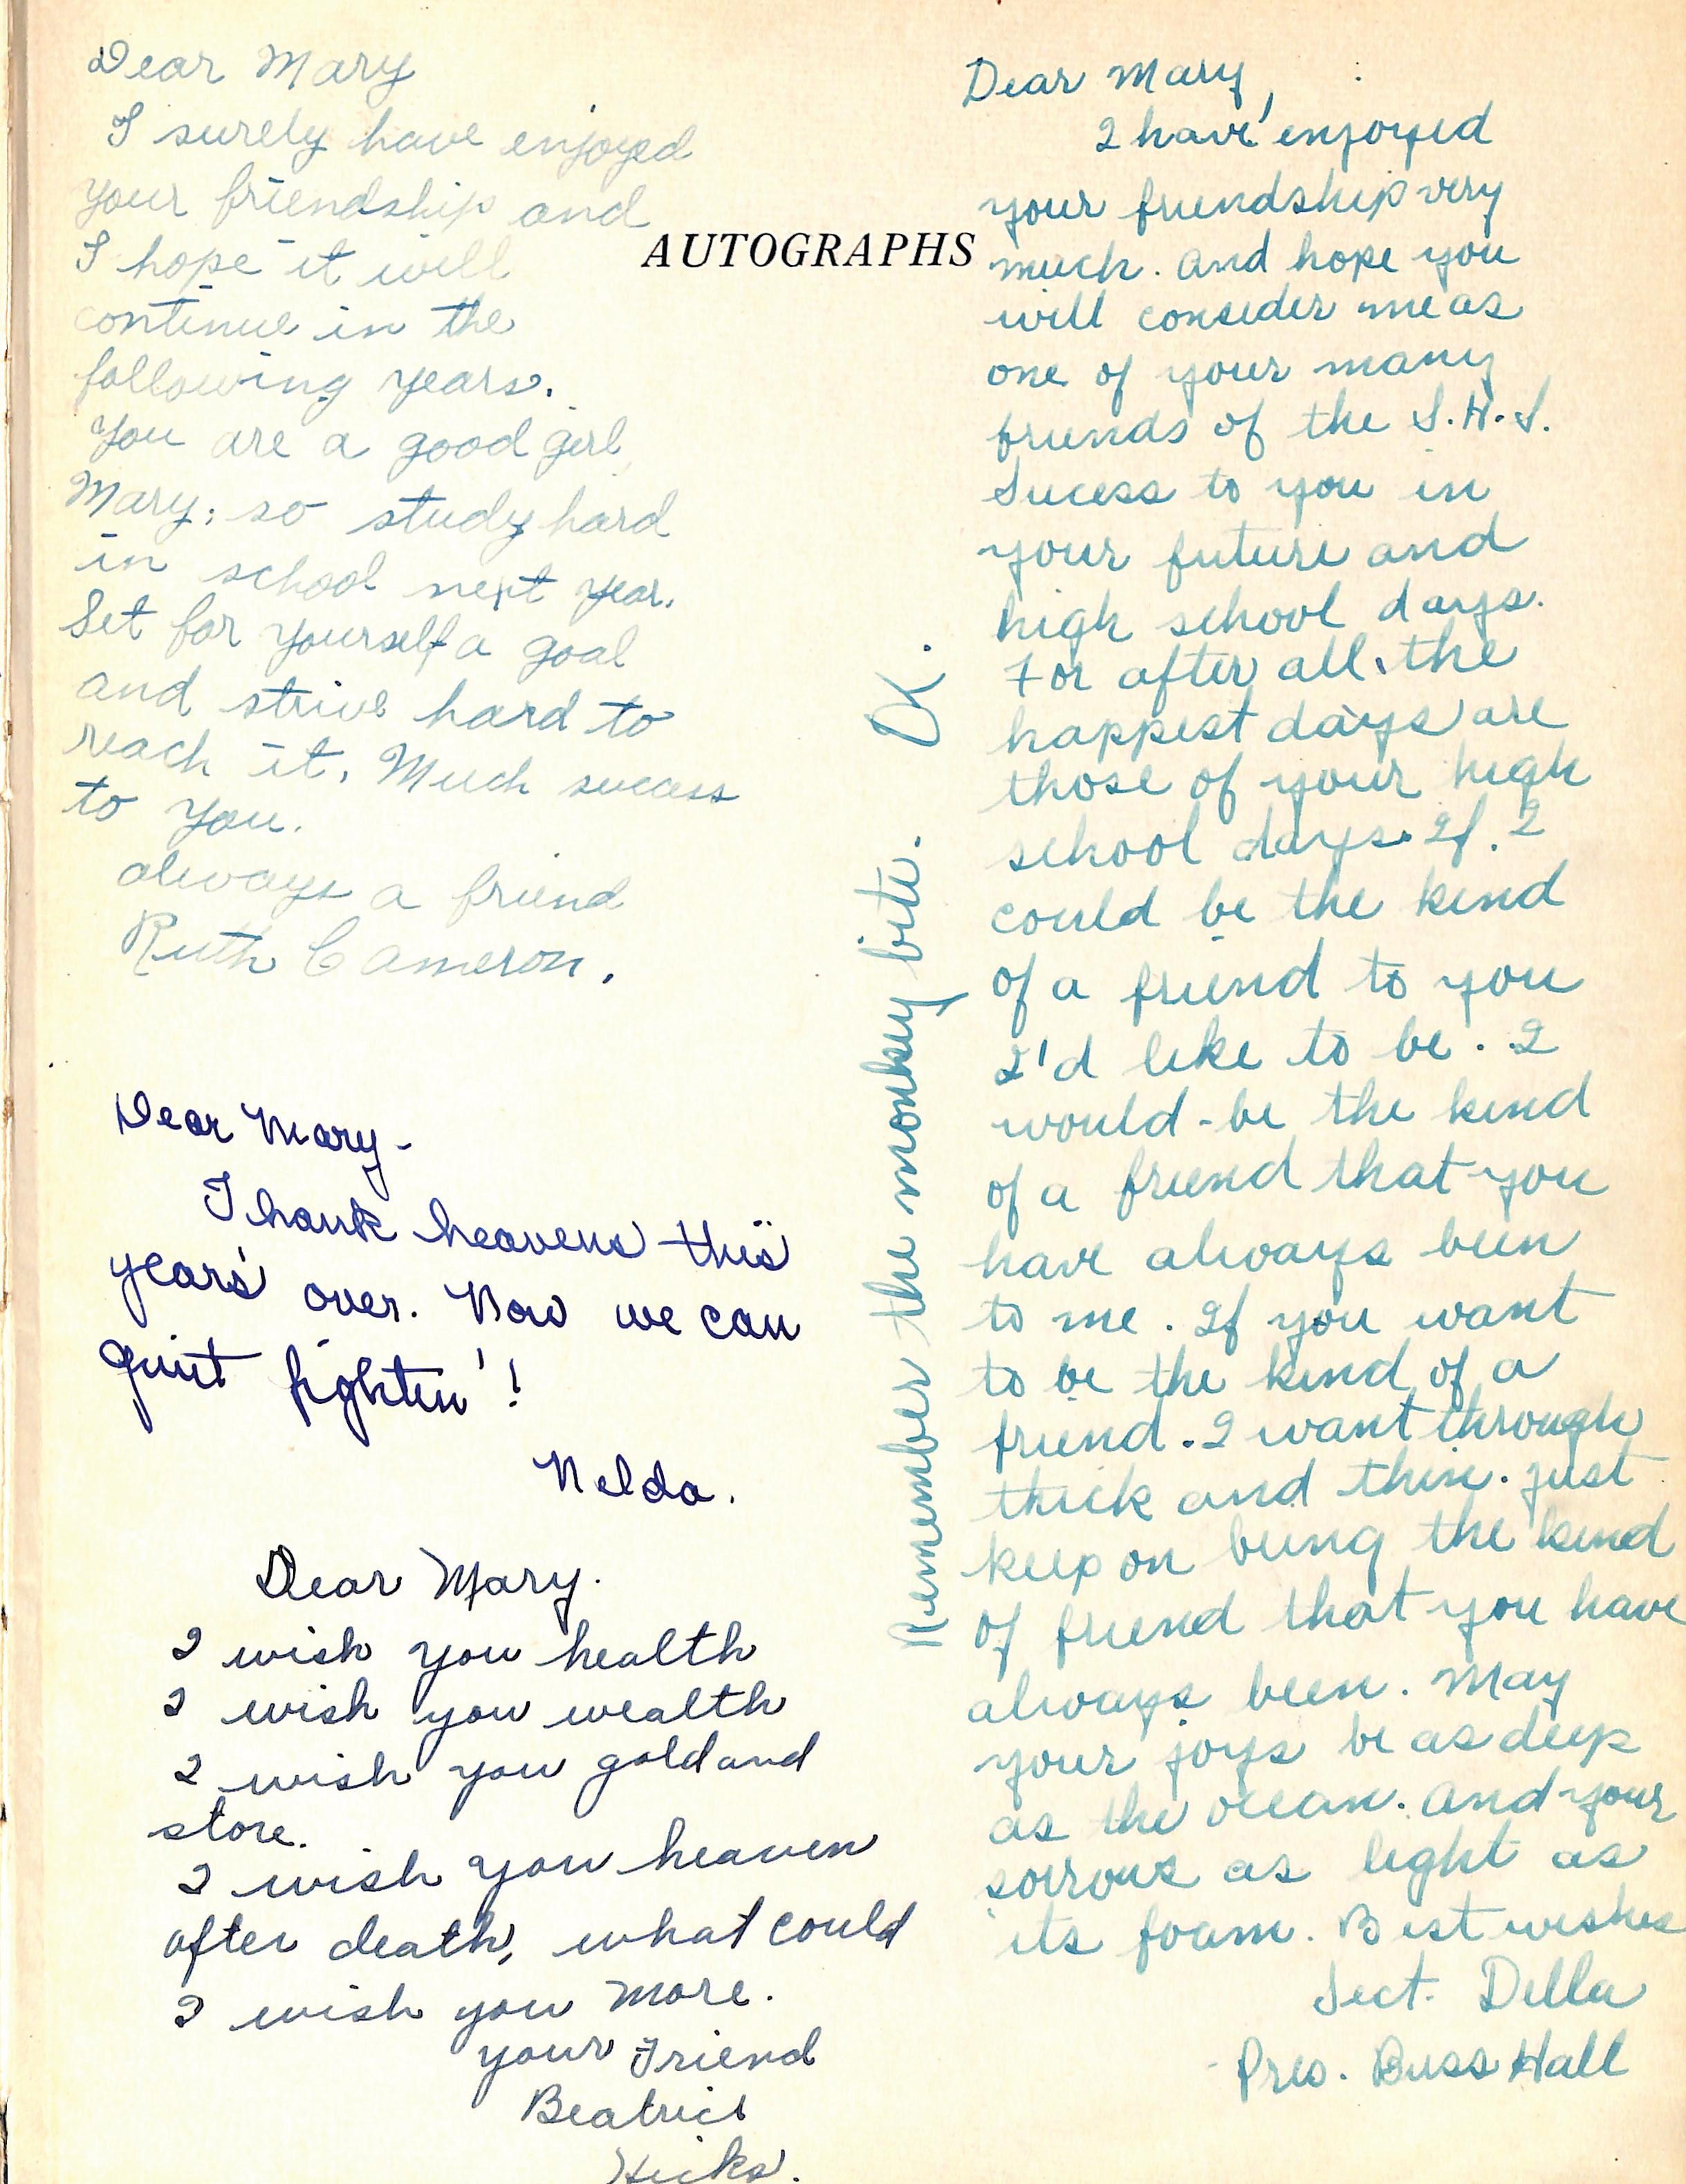 Dear Mary
I surely have enjoyed
your friendship and
I hope it will
continue in the
following years.
You are a good girl
Mary; so study hard
in school next year.
Set for yourself a goal
and strive hard to
reach it. Much success
to you.
always a friend
Ruth Cameron.
Dear Mary-
Thank heavens this
years' over. Now we can
quit fighten'!
Nelda.
Dear Mary.
I wish you health
I wish you wealth
I wish you gold and
store.
I wish you heaven
after death, what could
I wish you more.
your Friend
Beatrice
Hicks.
AUTOGRAPHS
Remember the monkey bite.
Dear Mary,
I have enjoyed
your friendship very
much. And hope you
will consider me as
one of your many
friends of the S.H.S.
Sucess to you in
your future and
high school days.
For after all, the
happest days are
those of your high
school days. If I
could be the kind
of a friend to you
I'd like to be. I
would-be the kind
of a friend that you
have always been
to me. If you want
to be the kind of a
friend. I want through
thick and thin. just
keep on being the kind
of friend that you have
always been. May
your joys be as deep
as the ocean. And your
sorrows as light as
its foam. Best wishes
Sect. Della
Pres. Buss Hall